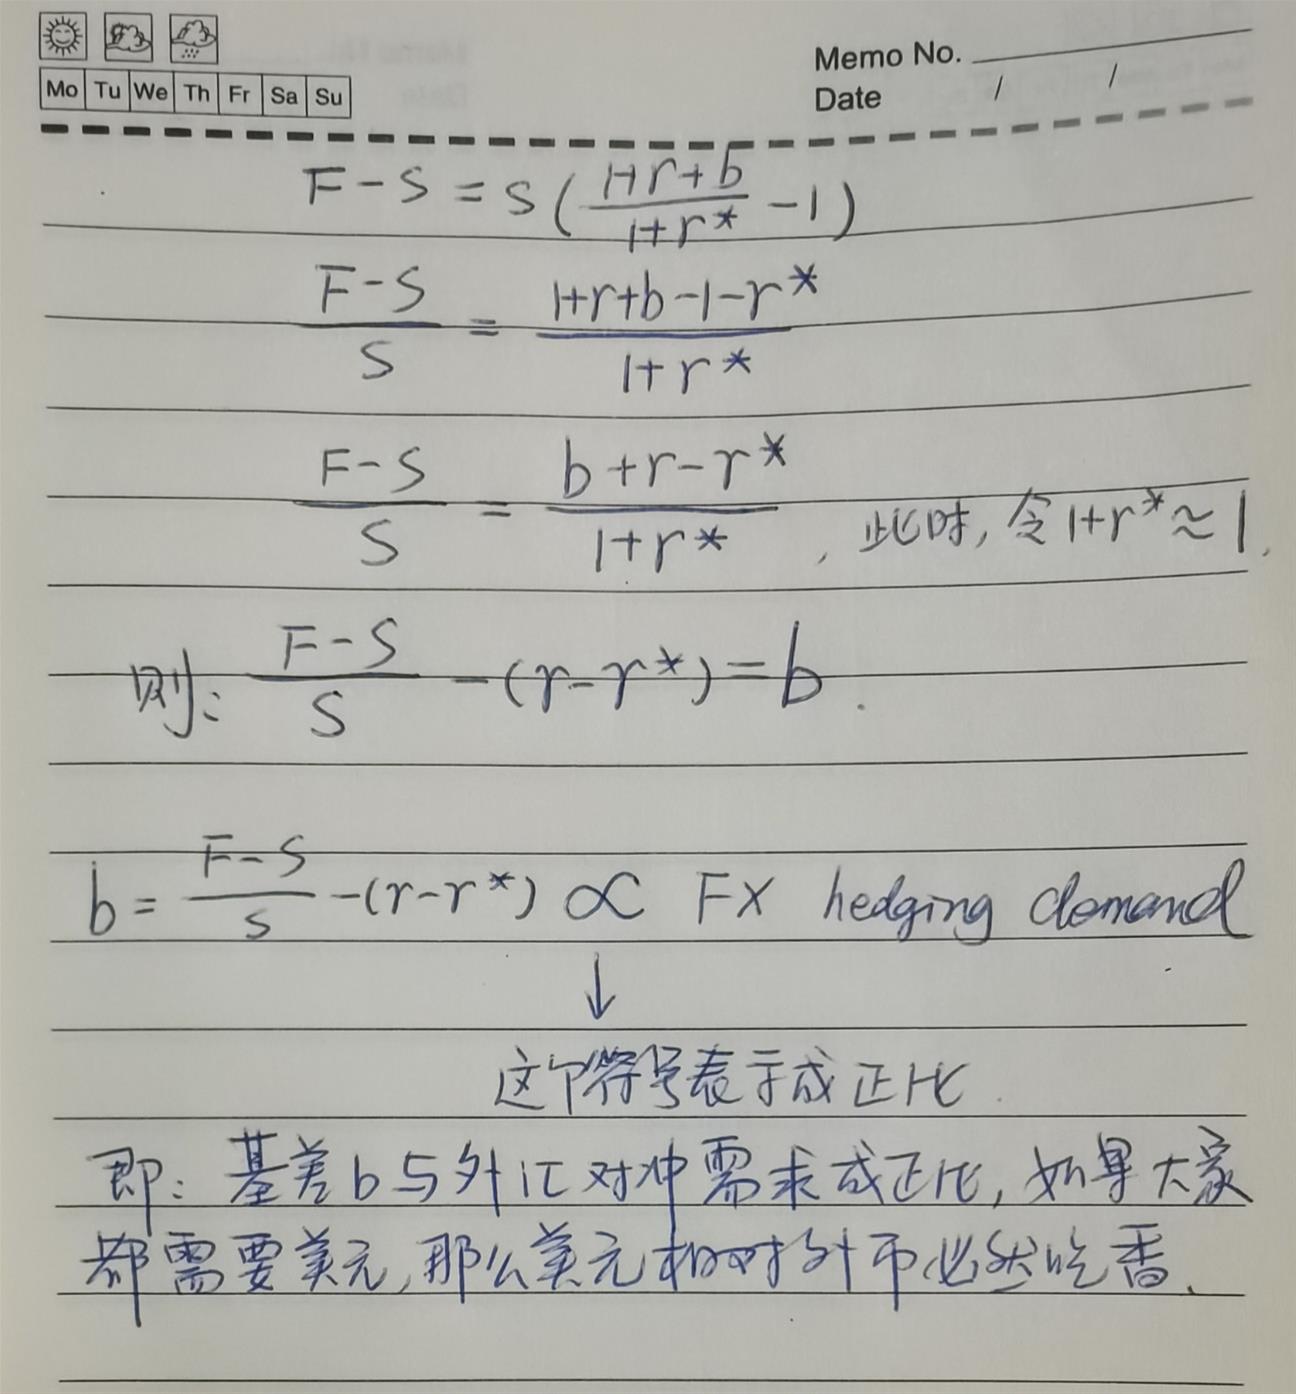 Mo Tu We Th Fr Sa Su
Memo No.
Date / /
F-S = S(\frac{1+r+b}{1+r*} -1)
\frac{F-S}{S} = \frac{1+r+b-1-r*}{1+r*}
\frac{F-S}{S} = \frac{b+r-r*}{1+r*}, 此时, 令1+r*≈1,
则: \frac{F-S}{S} -(r-r*)=b.
b = \frac{F-S}{S} -(r-r*) ∝ FX hedging demand
↓
这个符号表示成正比.
即: 基差b与外汇对冲需求成正比, 如果大家
都需要美元, 那么美元相对外币必然吃香.